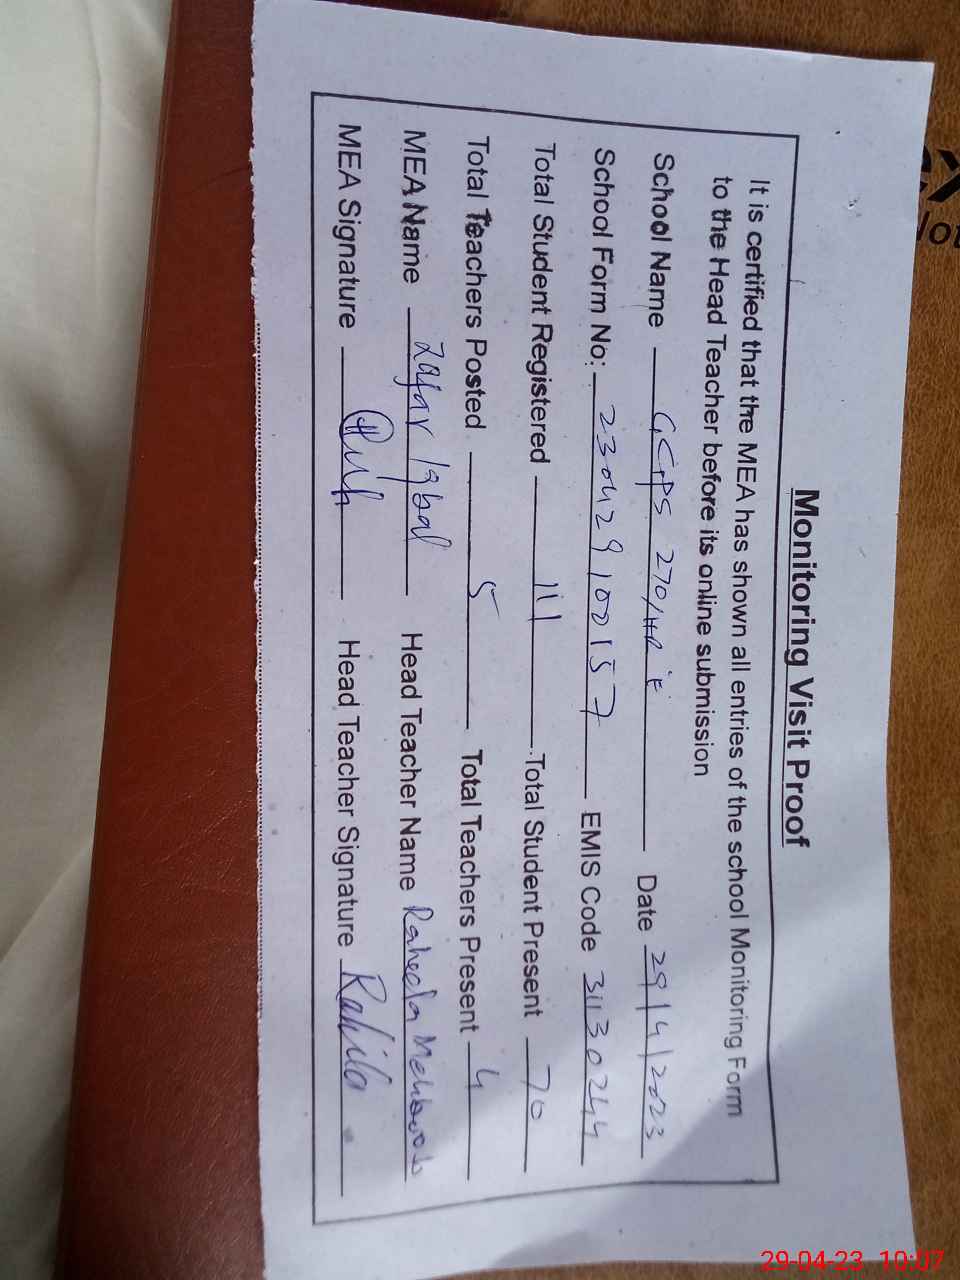 Monitoring Visit Proof
It is certified that the MEA has shown all entries of the school Monitoring Form
to the Head Teacher before its online submission
School Name GGPS 270/HR Date 29/4/2023
School Form No: 230429100157 EMIS Code 31130244
Total Student Registered 111 Total Student Present 70
Total Teachers Posted 5 Total Teachers Present 4
MEA Name Zafar Iqbal Head Teacher Name Raheela Mehboob
MEA Signature Head Teacher Signature Rahila
29-04-23 10:07